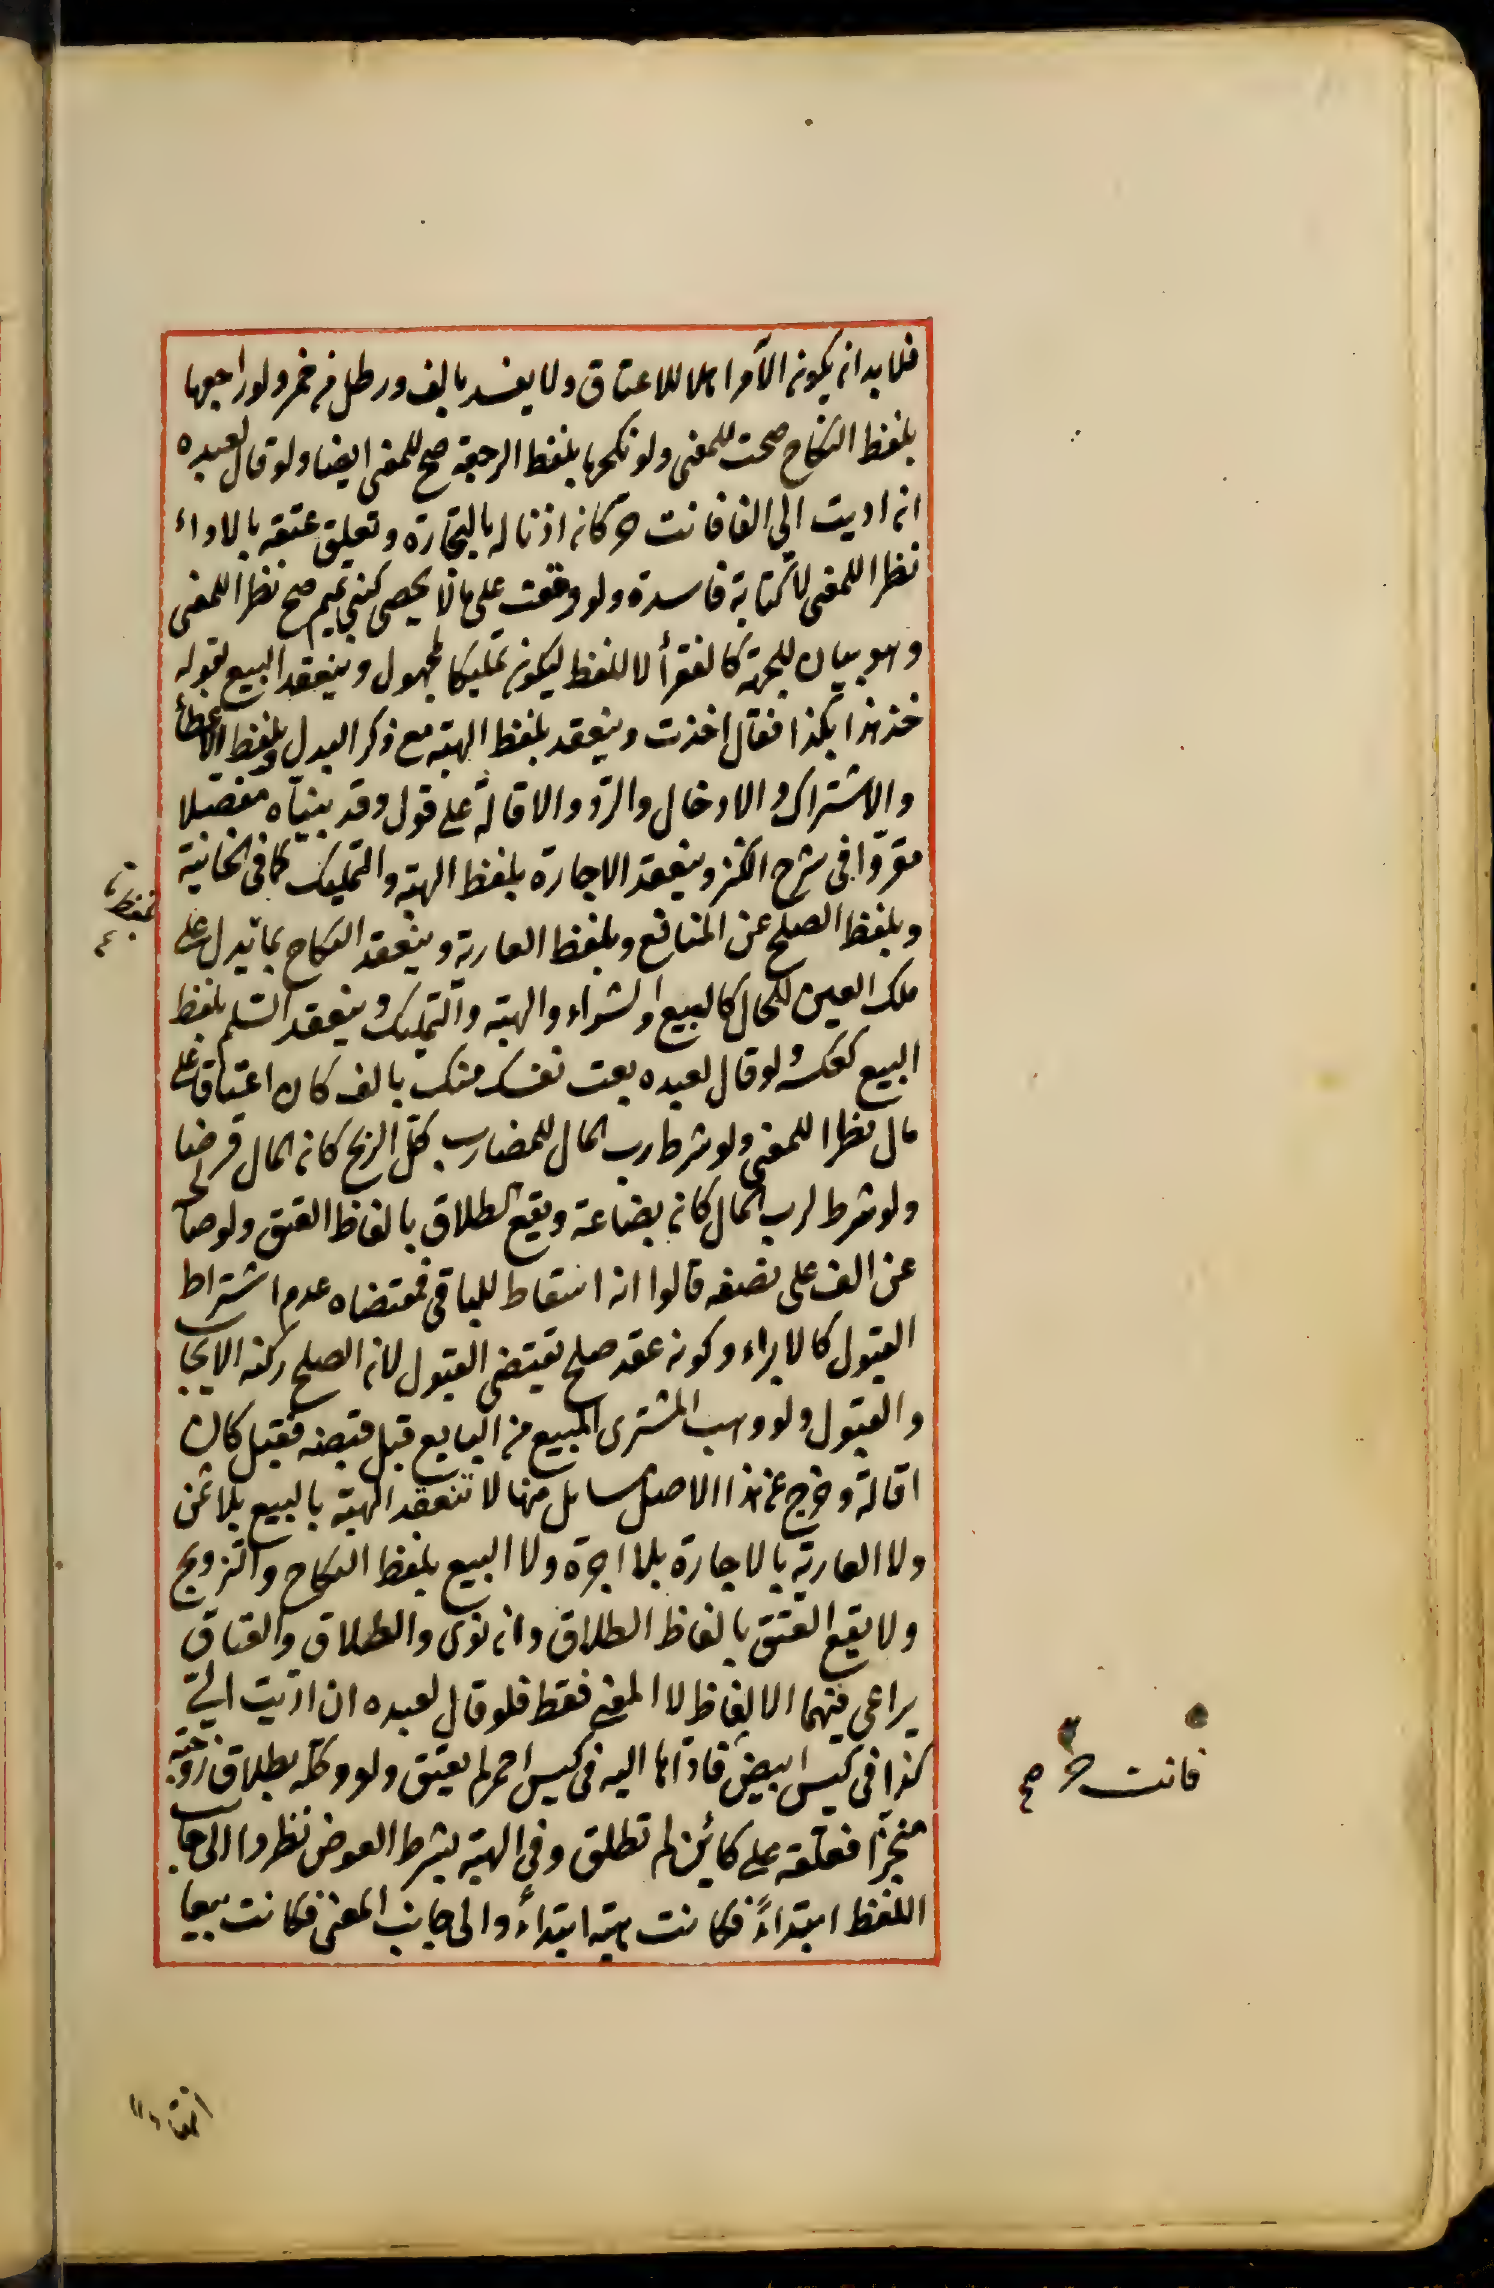 فلابد ان يكون الآمر اهلا للاعتاق ولا يفسد بالف ورطل من خمر ولو راجعها
بلفظ النكاح صحت للمعنى ولو نكحها بلفظ الرجعة صح للمعنى ايضا ولو قال لعبده
ان اديت الي الفا فانت حر كان اذنا له بالتجارة وتعلق عتقه بالاداء
نظرا للمعنى لا كتابة فاسدة ولو وقفت على ما لا يحصى كبني تميم صح نظرا للمعنى
وهو بيان للجهة كالفقرأ لا للفظ ليكون تمليكا لمجهول وينعقد البيع بقوله
خذ هذا بكذا فقال اخذت وينعقد بلفظ الهبة مع ذكر البدل وبلفظ الاعطأ
والاشتراك والادخال والرد والاقالة على قول وقد بيناه مفصلا
معزوا في شرح الكنز وينعقد الاجارة بلفظ الهبة والتمليك كما في الخانية
وبلفظ الصلح عن المنافع وبلفظ العارية وينعقد النكاح بما يدل على
ملك العين للحال كالبيع والشراء والهبة والتمليك وينعقد السلم بلفظ
البيع كعكسه ولو قال لعبده بعت نفسك منك بالف كان اعتاقا على
مال نظرا للمعنى ولو شرط رب المال للمضارب كل الربح كان المال قرضا
ولو شرط لرب المال كان بضاعة ويقع الطلاق بالفاظ العتق ولو صالحه
عن الف على نصفه قالوا انه اسقاط للباقي فمقتضاه عدم اشتراط
القبول كالابراء وكونه عقد صلح يقتضي القبول لان الصلح ركنه الايجاب
والقبول ولو وهب المشتري المبيع من البايع قبل قبضه فقبل كان
اقالة وخرج عن هذا الاصل مسايل منها لا تنعقد الهبة بالبيع بلا ثمن
ولا العارية بالاجارة بلا اجرة ولا البيع بلفظ النكاح والتزويج
ولا يقع العتق بالفاظ الطلاق وان نوى والطلاق والعتاق
يراعى فيهما الالفاظ لا المعنى فقط فلو قال لعبده ان اديت الي
كذا في كيس ابيض فاداها اليه في كيس احمر لم يعتق ولو وكله بطلاق زوجته
منجزا فعلقه على كائن لم تطلق وفي الهبة بشرط العوض نظروا الى جانب
اللفظ ابتداءً فكانت هبة ابتداءً والى جانب المعنى فكانت بيعا
فانت حر صح